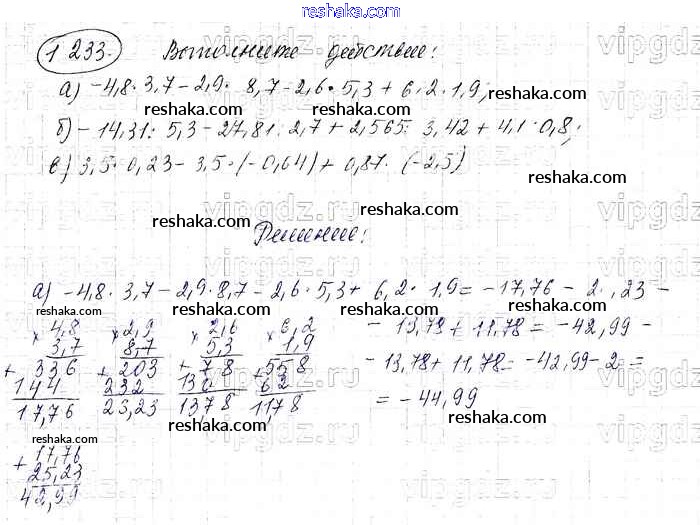 reshaka.com
1 233. Выполните действие:
а) -4,8 · 3,7 - 2,9 · 8,7 - 2,6 · 5,3 + 6,2 · 1,9;
reshaka.com reshaka.com
б) -14,31 : 5,3 - 27,81 : 2,7 + 2,565 : 3,42 + 4,1 · 0,8;
reshaka.com
в) 3,5 · 0,23 - 3,5 · (-0,64) + 0,87 · (-2,5)
reshaka.com reshaka.com
Решение:
reshaka.com
а) -4,8 · 3,7 - 2,9 · 8,7 - 2,6 · 5,3 + 6,2 · 1,9 = -17,76 - 2 . ,23 -
reshaka.com reshaka.com
- 13,78 + 11,78 = -42,99 -
- 13,78 + 11,78 = -42,99 - 2 =
= -44,99
× 4,8 × 2,9 × 2,6 × 6,2
3,7 8,7 5,3 1,9
+ 336 + 203 + 78 + 558
144 232 130 62
17,76 23,23 13,78 11,78
reshaka.com reshaka.com reshaka.com
+ 17,76
25,23
42,99
vipgdz.ru